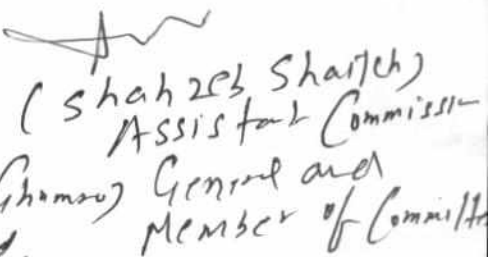 (Shahzeb Shaikh)
Assistant Commissi
General and
Member of Committe